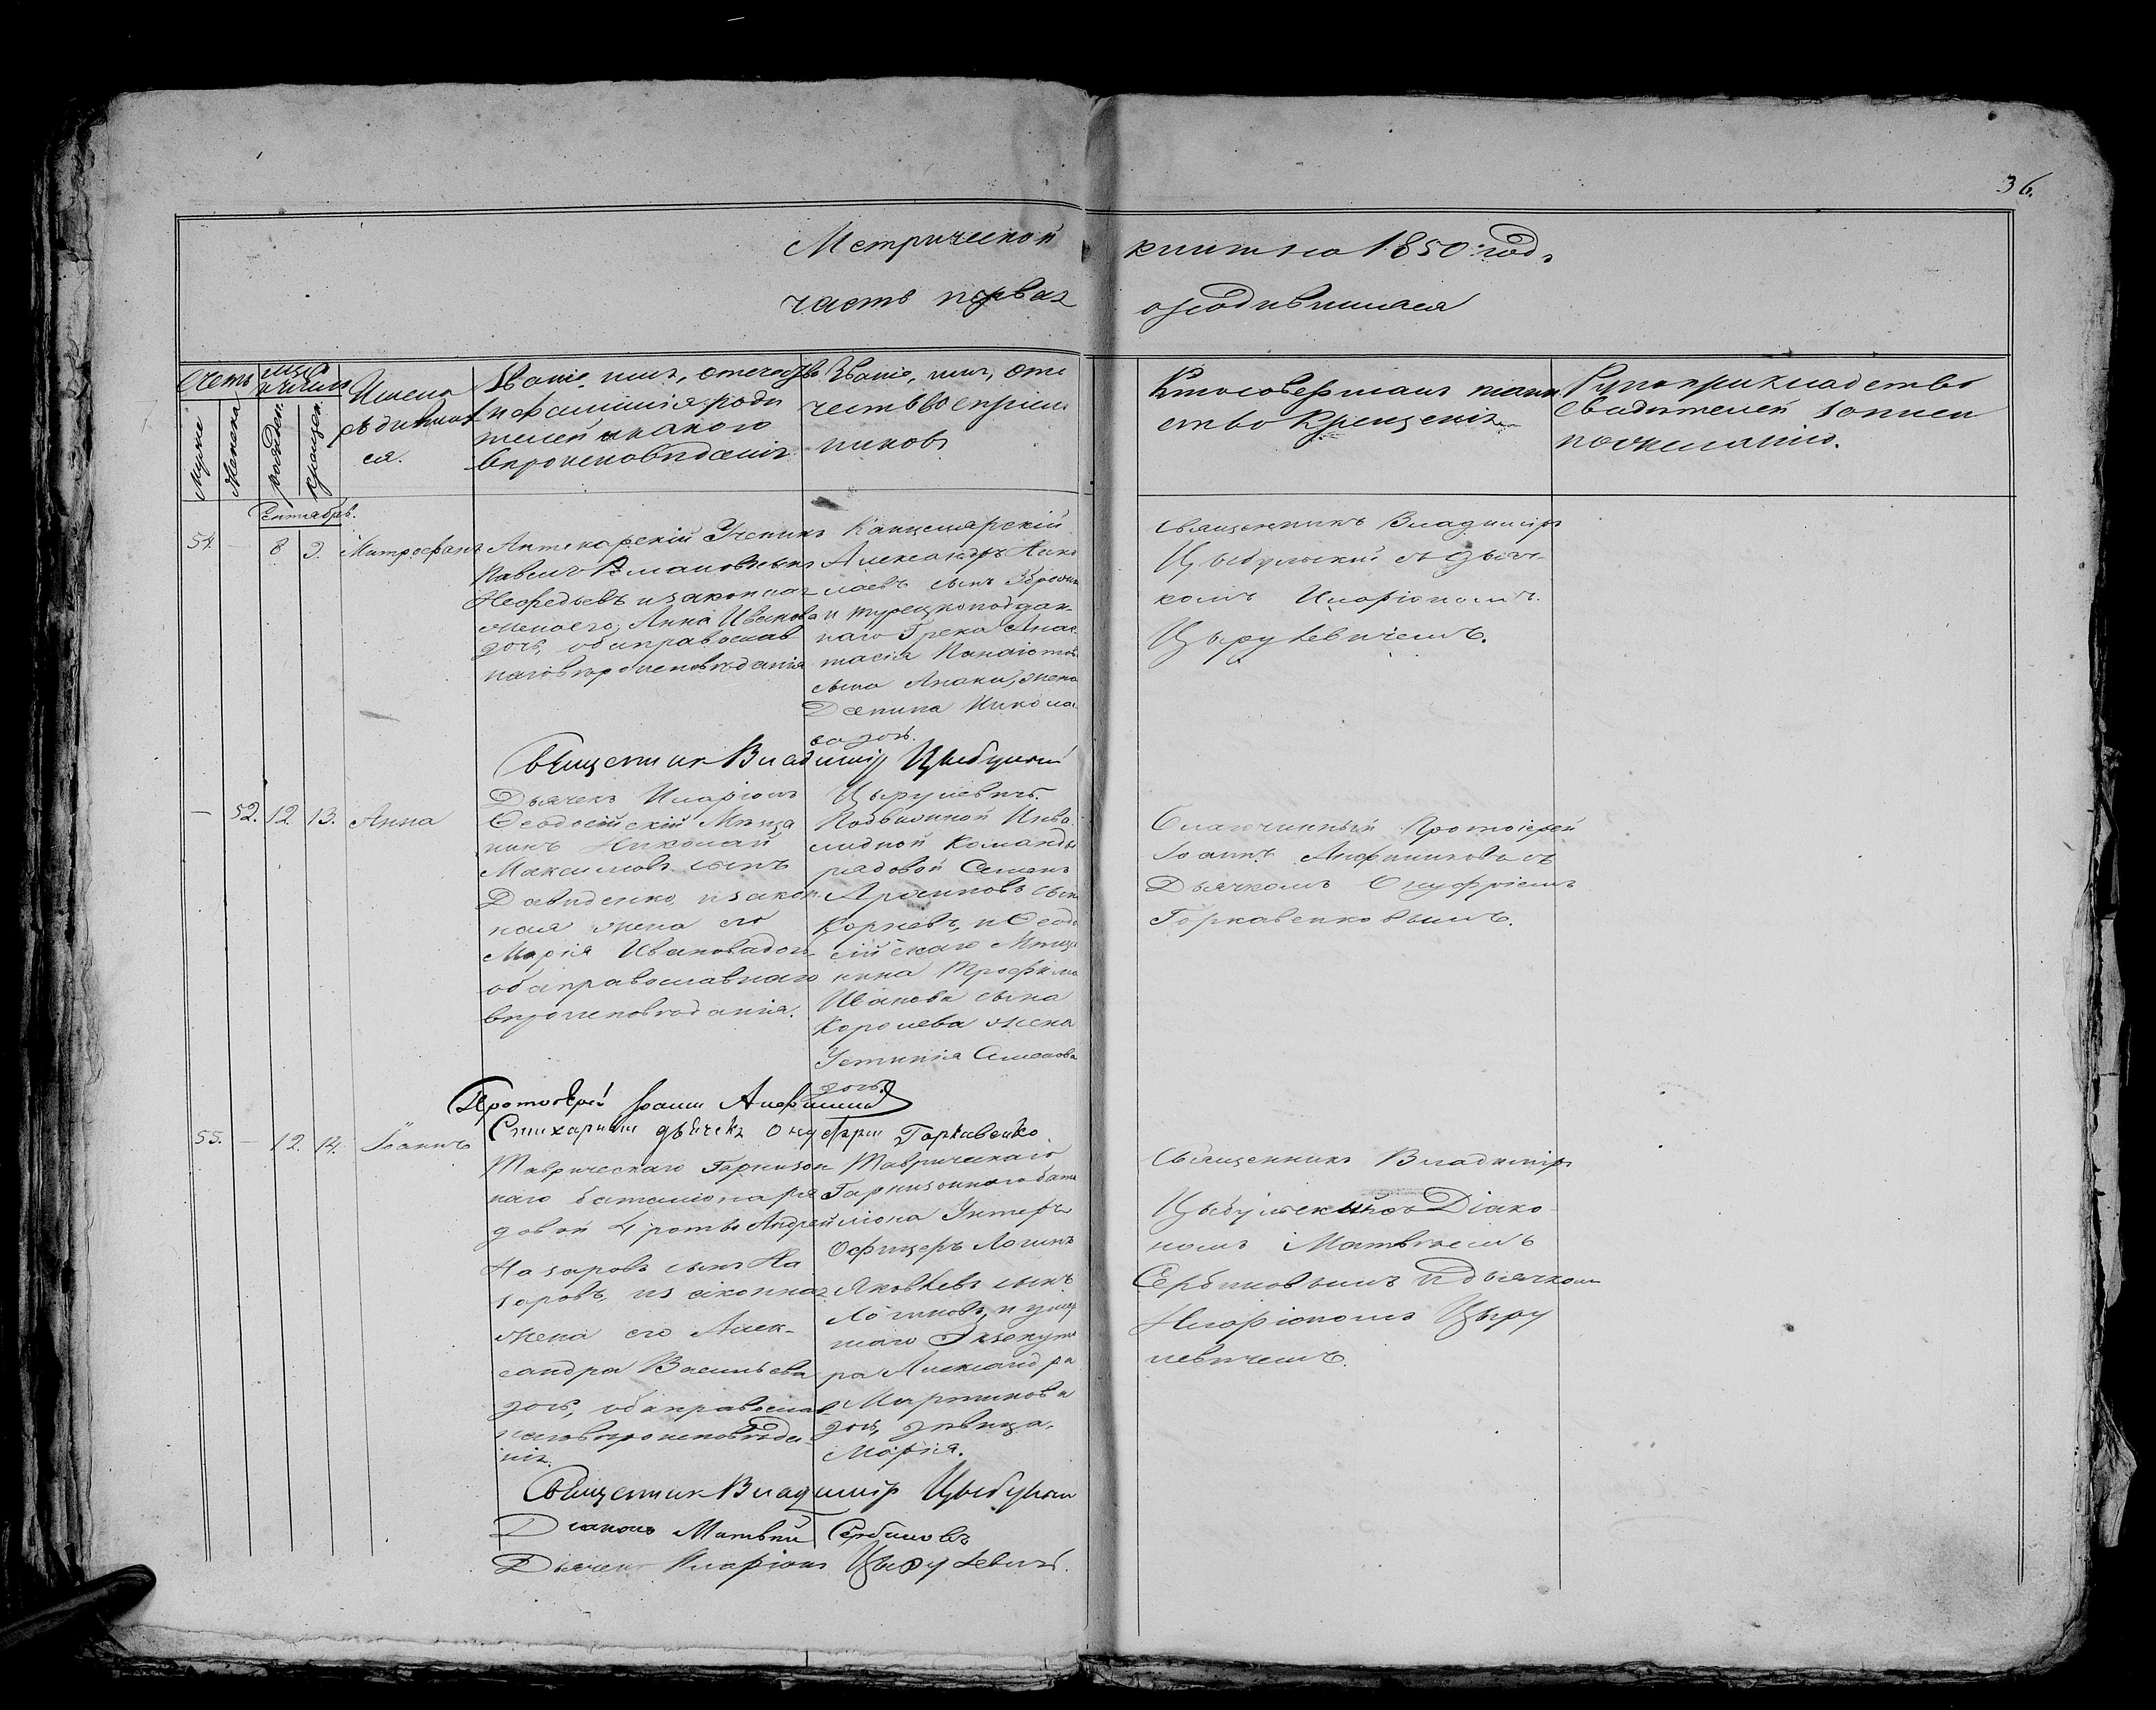 36.
Метрической книги на 1850 годъ
часть первая о родившихся
Счетъ
Мужс
Женска
мца и числа
рожден.
крещен.
Имена
родивших
ся.
Званіе, имя, отечество
и фамилія роди
телей и какого
вероисповѣданія
Званіе, имя, оте
чество воспріем
никовъ
Кто совершалъ таин
ство крещенія
Рукоприкладство
свидѣтелей записи
по желанію.
Сентябрь.
54. — 8. 9. Митрофанъ
Аптекарскій Ученикъ
Павелъ
Нефедьевъ и законная
жена его, Анна Иванова
дочь, оба православ
наго вѣроисповѣданія
Канцелярскій
Александръ Нико
лаевъ сынъ
и турецкоподдан-
наго Грека Анас
тасія Панаіотова
сына жена
Николае
ва дочь.
Священникъ Владимір
Цыбульскій съ дьяч-
комъ Иларіономъ
Цырулевичемъ.
Священник Владимір Цыбульскій
Дьячекъ Иларіонъ Цырулевичъ.
— 52. 12. 13. Анна
Ѳеодосійскій Мѣща
нинъ Николай
Максимовъ сынъ
Давиденко, и закон
ная жена его
Марія Иванова дочь,
оба православнаго
вѣроисповѣданія.
Подвижной Инва
лидной Команды
рядовой Семенъ
сынъ
Корневъ, и Ѳеодо
сійскаго Мѣща
нина Трофима
Иванова сына
Королева жена
Устинія Семенова
дочь.
Благочинный Протоіерей
Іоаннъ съ
Дьячкомъ Онуфріемъ
Горкавенковымъ.
Протоіерей Іоанн
Стихарный дьячекъ Онуфрій Горкавенко
55. — 12. 14. Іоаннъ
Таврическаго Гарнизон
наго баталіона ря
довой 4 роты Андрей
Назаровъ сынъ На
заровъ, и законная
жена его Алек-
сандра Васильева
дочь, оба православ
наго вѣроисповѣда
нія.
Таврическаго
Гарнизоннаго бата
ліона Унтеръ
Офицеръ Логинъ
Яковлевъ сынъ
Логиновъ, и умер
шаго Экзекуто
ра Александра
Мартинова
дочь, дѣвица,
Марія.
Священникъ Владимір
Цыбульскій съ Діако-
номъ Матвѣемъ
Сербиновымъ и дьячкомъ
Иларіономъ Цыру
левичемъ.
Священник Владимір Цыбульскій
Діаконъ Матвѣй Сербиновъ
Дьячекъ Иларіонъ Цырулевичъ.